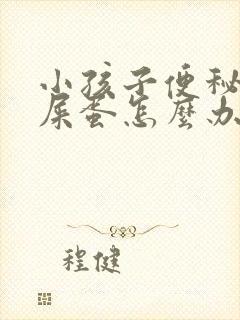 小孩子便秘
屎蛋怎麼办
程健